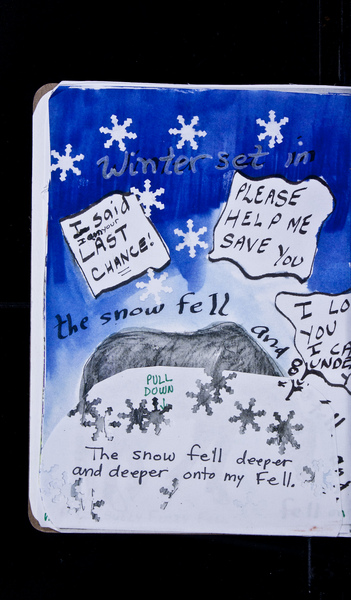 Winter set in
I said
I am your
LAST
CHANCE!
PLEASE
HELP ME
SAVE YOU
the snow fell
and
I LO
YOU
I CA
UNDE
PULL
DOWN
The snow fell deeper
and deeper onto my Fell.